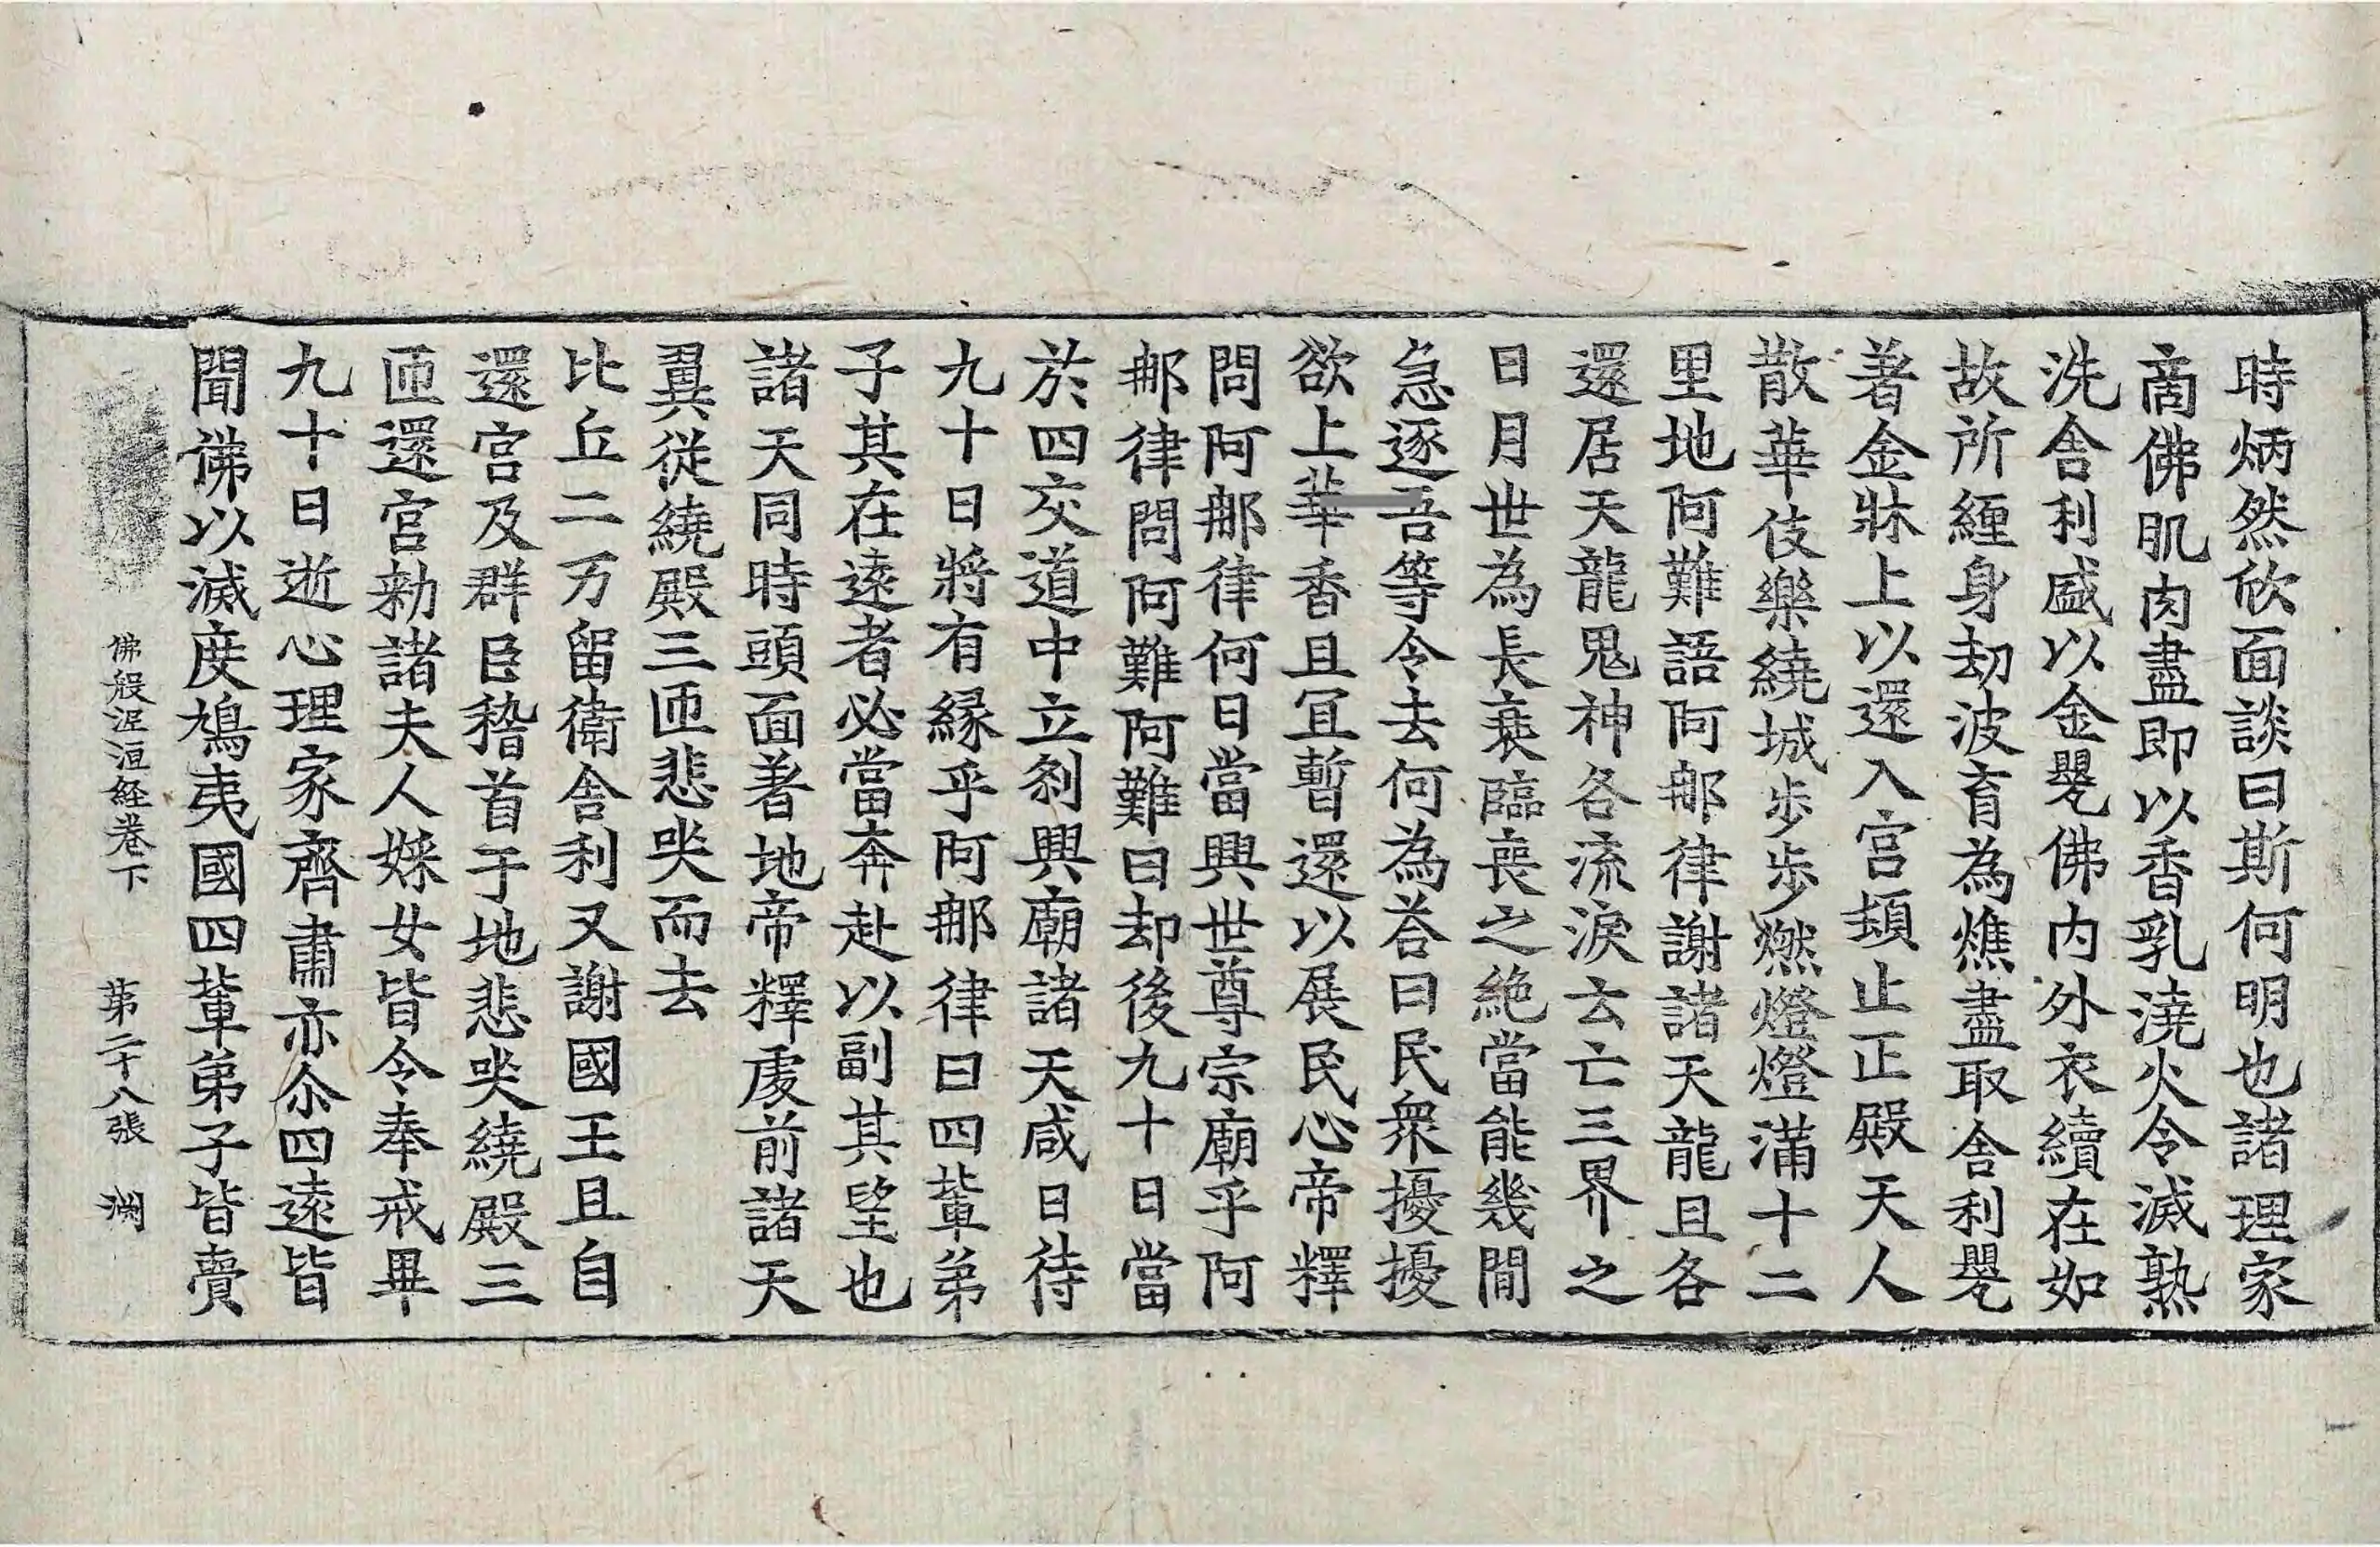 時炳然欣面談曰斯何明也諸理家
啇佛肌肉盡即以香乳澆火令滅熟
洗舍利盛以金甖佛內外衣續在如
故所纏身劫波育為燋盡取舍利甖
著金牀上以還入宮頓止正殿天人
散華伎樂繞城步步燃燈燈滿十二
里地阿難語阿那律謝諸天龍且各
還居天龍鬼神各流淚云亡三界之
日月世為長衰臨喪之絕當能幾閒
急逐吾等令去何為荅曰民衆擾擾
欲上華香且冝暫還以展民心帝釋
問阿那律何日當興世尊宗廟乎阿
那律問阿難阿難曰却後九十日當
於四交道中立剎興廟諸天咸曰待
九十日將有縁乎阿那律曰四輩弟
子其在遠者必當奔赴以副其望也
諸天同時頭面著地帝釋處前諸天
翼從繞殿三匝悲哭而去
比丘二万留衛舍利又謝國王且自
還宮及群臣稽首于地悲哭繞殿三
匝還宮勑諸夫人婇女皆令奉戒畢
九十日逝心理家齊肅亦尒四遠皆
聞佛以滅度鳩夷國四輩弟子皆賷
佛般泥洹経卷下 第二十八張 渊